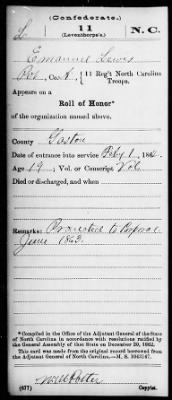 (Confederate.)
L 11 N. C.
(Leventhorpe's.)
Emanuel Lewis
Pvt., Co. H, { 11 Reg't North Carolina Troops.
Appears on a
Roll of Honor*
of the organization named above.
County Gaston
Date of entrance into service Feby 1, 1862.
Age 19; Vol. or Conscript Vol.
Died or discharged, and when
Remarks: Promoted to Corporal
June 1863.
*Compiled in the Office of the Adjutant General of the State
of North Carolina in accordance with resolutions ratified by
the General Assembly of that State on December 20, 1862.
This card was made from the original record borrowed from
the Adjutant General of North Carolina.—M. S.
Potter
(637) Copyist.